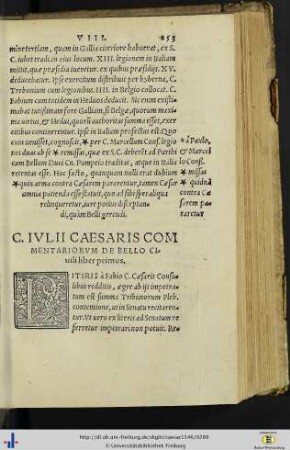 VIII. 253
mineretiam, quem in Gallia citeriore habuerat, ex S.
C. iubet tradi in eius locum. XIII. legionem in Italiam
mittit, quæ præsidia tueretur, ex quibus præsidijs XV.
deducebatur. Ipse exercitum distribuit per hyberna, C.
Trebonium cum legionibus IIII. in Belgio collocat. C.
Fabium cum totidem in Heduos deducit. Sic enim existi-
mabat tutissimam fore Galliam, si Belgæ, quorum maxi-
ma uirtus, & Hedui, quorū authoritas summa esset, exer
citibus continerentur. Ipse in Italiam profectus est. Quo
cum uenisset, cognoscit, * per C. Marcellum Consulē gio * à Paulo,
nes duas ab se * remissas, quæ ex S.C. deberēt ad Parthi & Marcel
cum Bellum Duci Cn. Pompeio traditas, atque in Italia lo Cōsf.
retentas esse. Hoc facto, quanquam nulli erat dubium * missas
* quin arma contra Cæsarem pararentur, tamen Cæsar * quidnā
omnia patienda esse statuit, quoad sibi spes aliqua contra Cæ
relinqueretur, iure potius disceptan- sarem pa-
di, quàm Belli gerendi. raretur
C. IVLII CAESARIS COM
MENTARIORVM DE BELLO CI-
uili liber primus.
LITERIS à Fabio C. Cæsaris Consu-
libus redditis, ægre ab ijs impetra-
tum est summa Tribunorum Pleb.
contentione, ut in Senatu recitaren-
tur. Vt uero ex literis ad Senatum re
ferretur impetrari non potuit. Re-
http://dl.ub.uni-freiburg.de/diglit/caesar1546/0289
© Universitätsbibliothek Freiburg